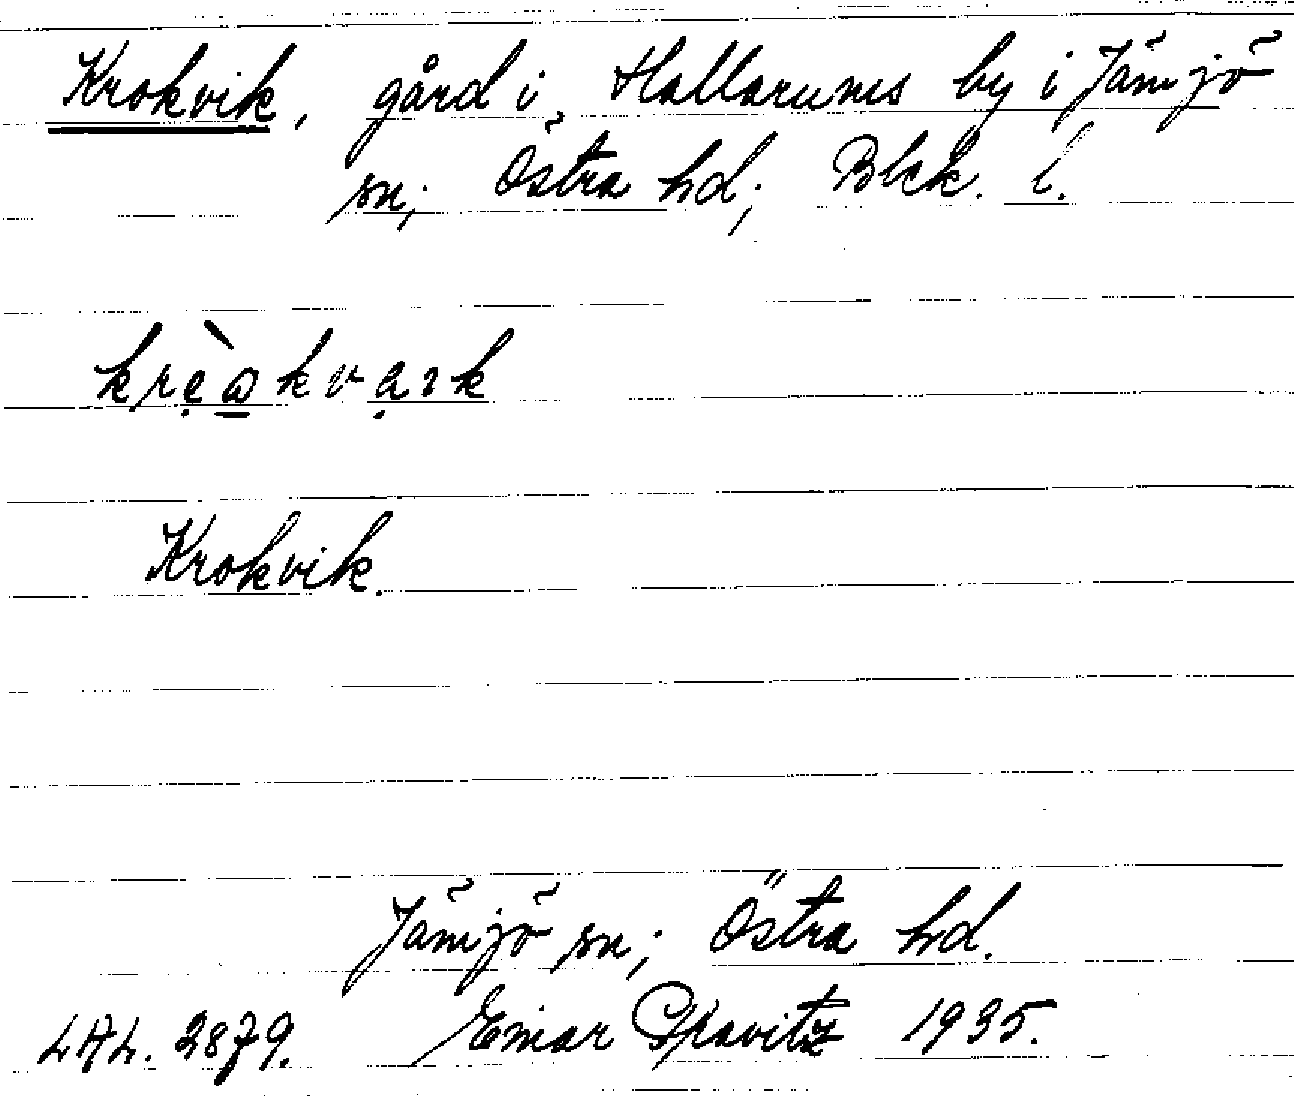 Krokvik, gård i Hallarums by i Jämjö
sn; Östra hd; Blek. l.
krẹ̀α̲kvạık
Krokvik.
Jämjö sn; Östra hd.
LAL. 2879. Einar Skavitz 1935.